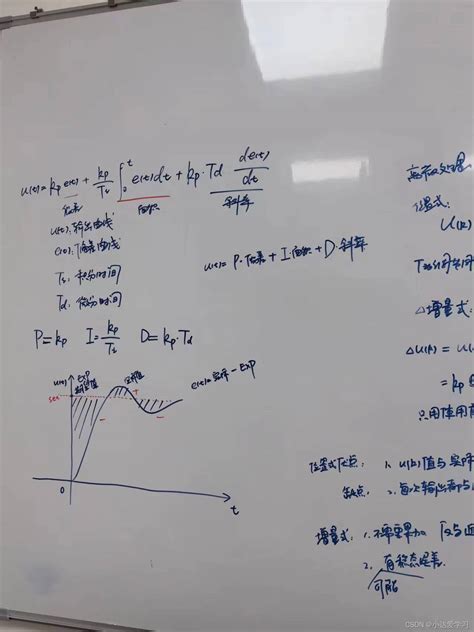 u(t)=kp e(t) + kp/Ti ∫₀ᵗ e(t)dt + kp·Td de(t)/dt
误差 面积 斜率
u(t): 输出曲线
e(t): 误差曲线
Ti: 积分时间
Td: 微分时间
u(t)= P·误差 + I·面积 + D·斜率
P=kp I=kp/Ti D=kp·Td
u(t) Exp 期望值 实际值
set
e(t)=实际-Exp
+
- -
0 t
离散处理
位置式:
U(k)
△增量式:
△U(k) = U(
= kp
只用使用
位置式优点: 1. u(k)值与实际
缺点: 2. 每次输出都与
增量式: 1. 不需要累加
2. 有稳态误差
可能
CSDN @小达爱学习